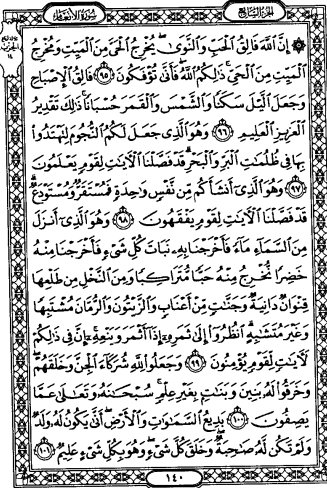 سُورَةُ الأَنْعَامِ
الجُزْءُ السَّابِعُ
۞ إِنَّ ٱللَّهَ فَالِقُ ٱلْحَبِّ وَٱلنَّوَىٰ يُخْرِجُ ٱلْحَىَّ مِنَ ٱلْمَيِّتِ وَمُخْرِجُ
ٱلْمَيِّتِ مِنَ ٱلْحَىِّ ذَٰلِكُمُ ٱللَّهُ فَأَنَّىٰ تُؤْفَكُونَ ٩٥ فَالِقُ ٱلْإِصْبَاحِ
وَجَعَلَ ٱلَّيْلَ سَكَنًا وَٱلشَّمْسَ وَٱلْقَمَرَ حُسْبَانًا ذَٰلِكَ تَقْدِيرُ
ٱلْعَزِيزِ ٱلْعَلِيمِ ٩٦ وَهُوَ ٱلَّذِى جَعَلَ لَكُمُ ٱلنُّجُومَ لِتَهْتَدُوا۟
بِهَا فِى ظُلُمَٰتِ ٱلْبَرِّ وَٱلْبَحْرِ قَدْ فَصَّلْنَا ٱلْءَايَٰتِ لِقَوْمٍ يَعْلَمُونَ
٩٧ وَهُوَ ٱلَّذِىٓ أَنشَأَكُم مِّن نَّفْسٍ وَٰحِدَةٍ فَمُسْتَقَرٌّ وَمُسْتَوْدَعٌ
قَدْ فَصَّلْنَا ٱلْءَايَٰتِ لِقَوْمٍ يَفْقَهُونَ ٩٨ وَهُوَ ٱلَّذِىٓ أَنزَلَ
مِنَ ٱلسَّمَآءِ مَآءً فَأَخْرَجْنَا بِهِۦ نَبَاتَ كُلِّ شَىْءٍ فَأَخْرَجْنَا مِنْهُ
خَضِرًا نُّخْرِجُ مِنْهُ حَبًّا مُّتَرَاكِبًا وَمِنَ ٱلنَّخْلِ مِن طَلْعِهَا
قِنْوَانٌ دَانِيَةٌ وَجَنَّٰتٍ مِّنْ أَعْنَابٍ وَٱلزَّيْتُونَ وَٱلرُّمَّانَ مُشْتَبِهًا
وَغَيْرَ مُتَشَٰبِهٍ ٱنظُرُوٓا۟ إِلَىٰ ثَمَرِهِۦٓ إِذَآ أَثْمَرَ وَيَنْعِهِۦٓ إِنَّ فِى ذَٰلِكُمْ
لَءَايَٰتٍ لِّقَوْمٍ يُؤْمِنُونَ ٩٩ وَجَعَلُوا۟ لِلَّهِ شُرَكَآءَ ٱلْجِنَّ وَخَلَقَهُمْ
وَخَرَقُوا۟ لَهُۥ بَنِينَ وَبَنَٰتٍۭ بِغَيْرِ عِلْمٍ سُبْحَٰنَهُۥ وَتَعَٰلَىٰ عَمَّا
يَصِفُونَ ١٠٠ بَدِيعُ ٱلسَّمَٰوَٰتِ وَٱلْأَرْضِ أَنَّىٰ يَكُونُ لَهُۥ وَلَدٌ
وَلَمْ تَكُن لَّهُۥ صَٰحِبَةٌ وَخَلَقَ كُلَّ شَىْءٍ وَهُوَ بِكُلِّ شَىْءٍ عَلِيمٌ ١٠١
١٤٠